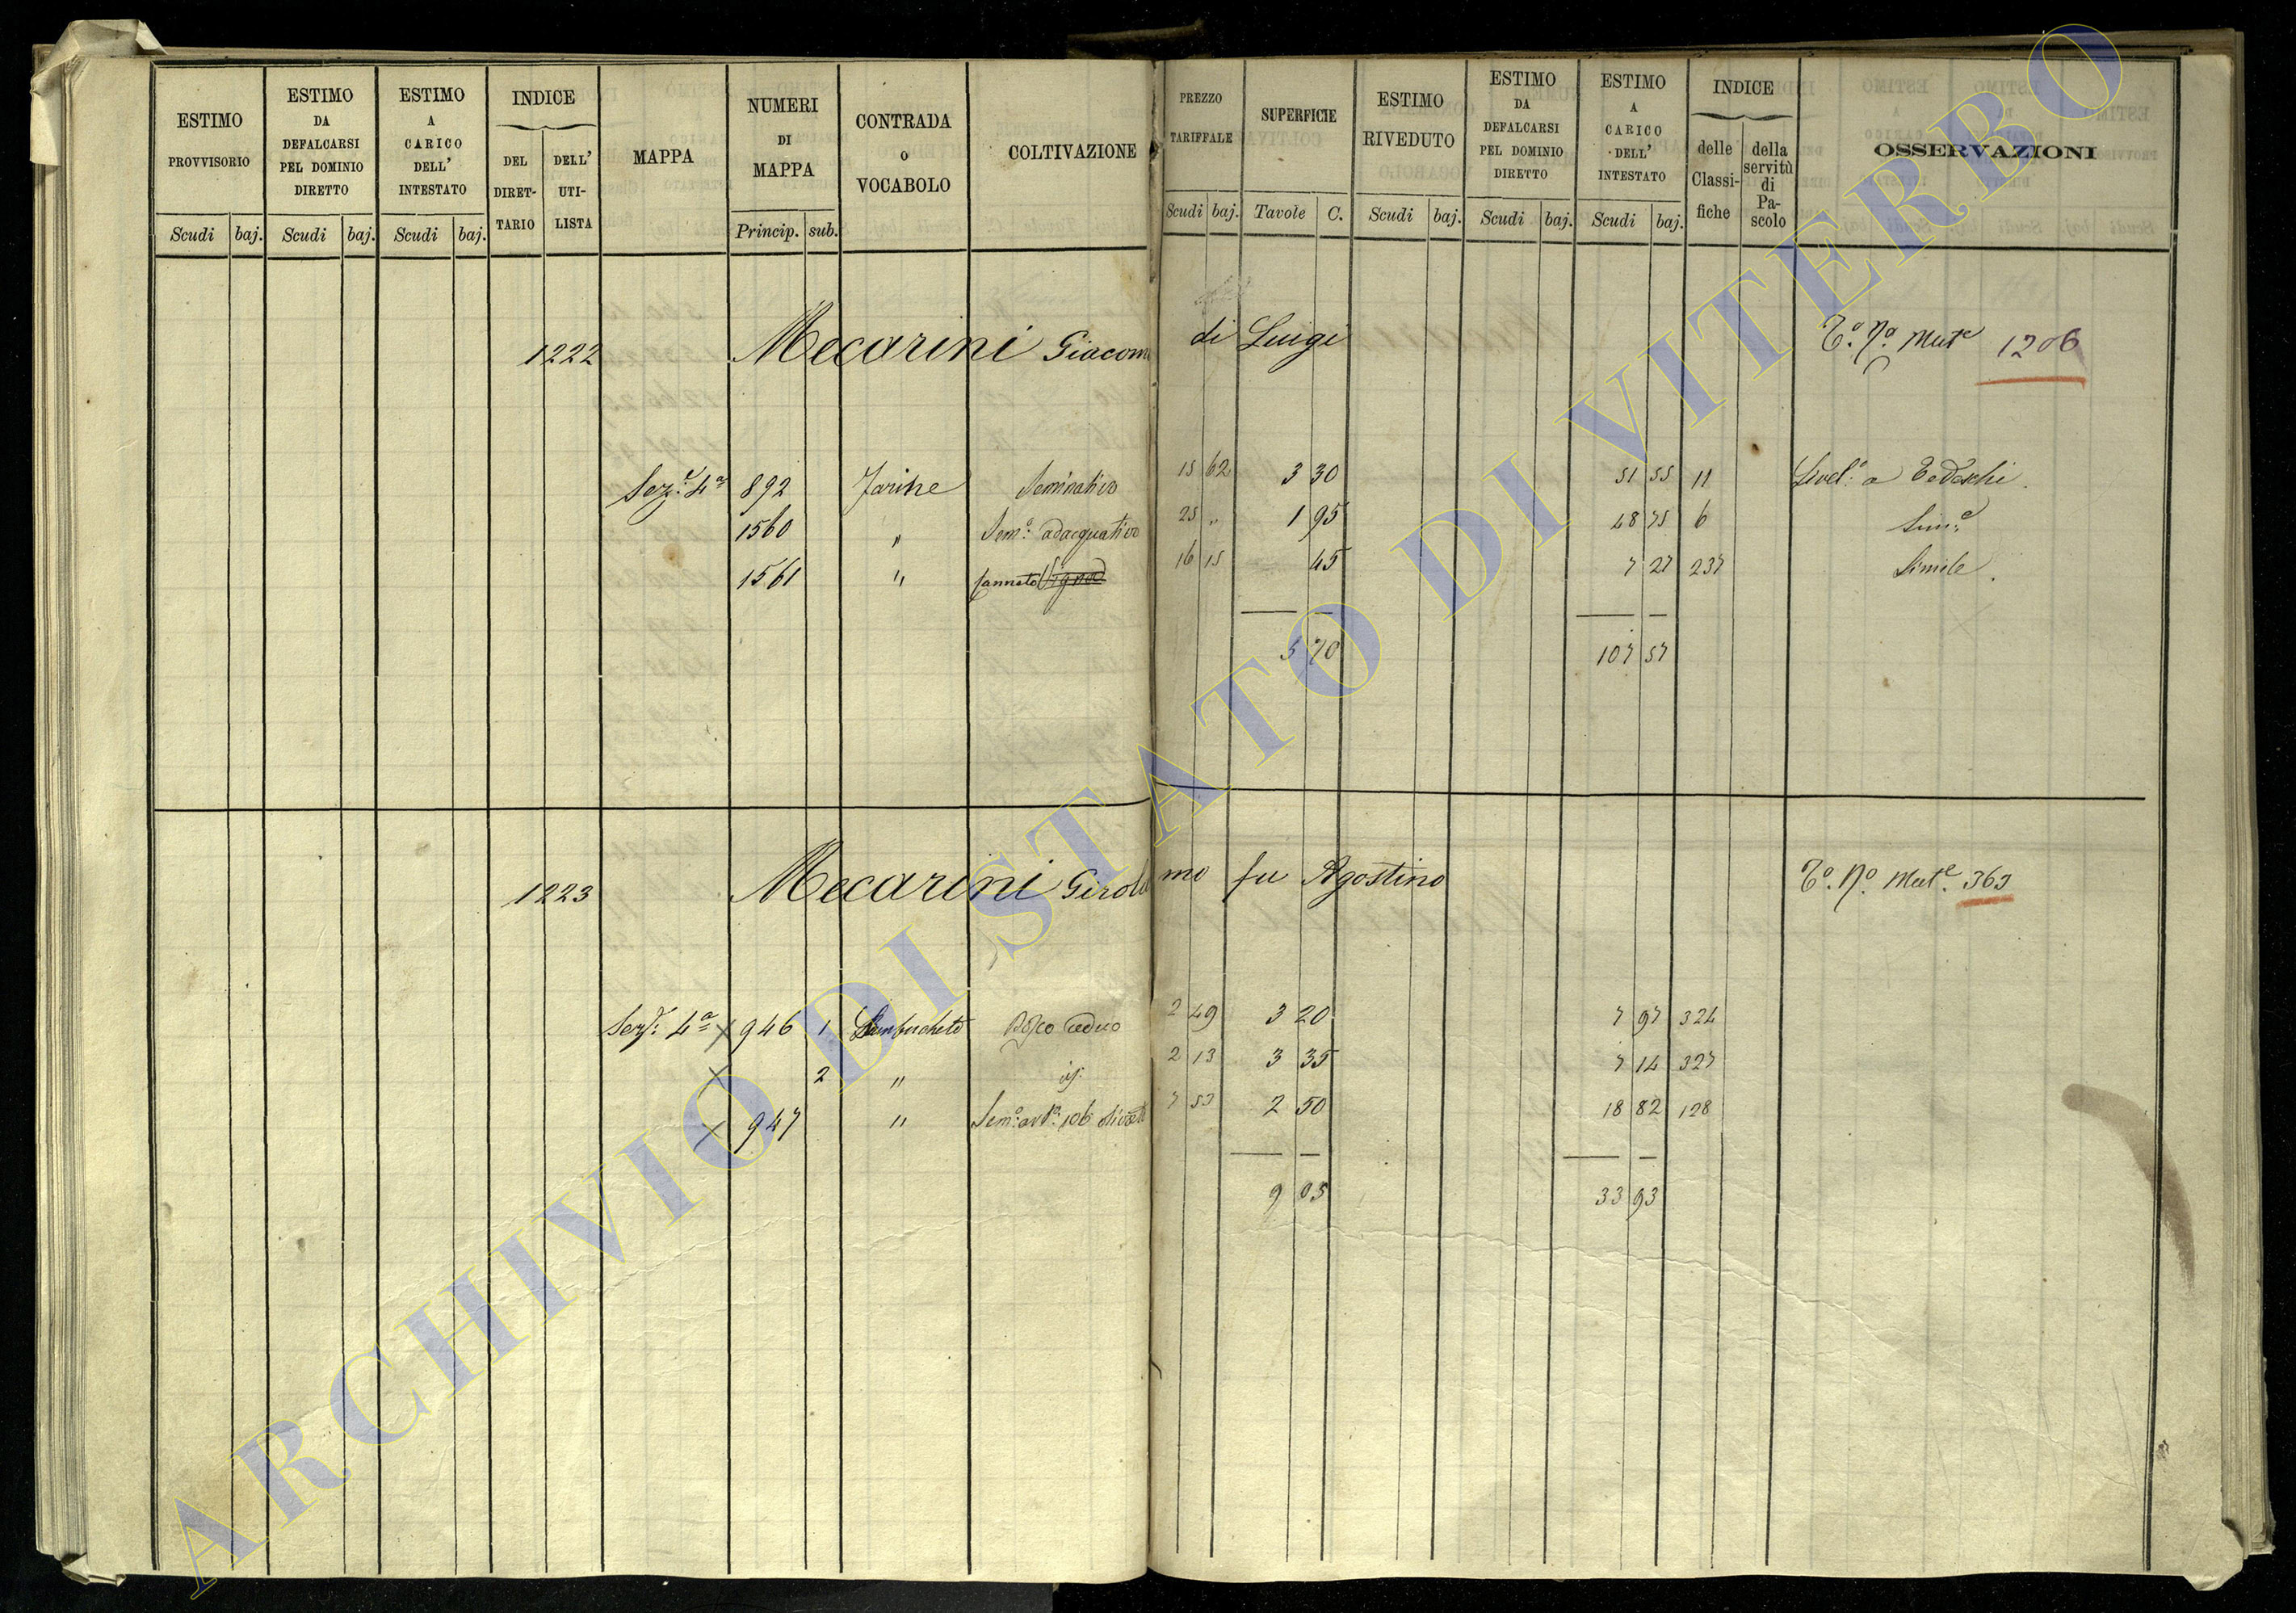 ESTIMO PROVVISORIO
Scudi baj.
ESTIMO DA DEFALCARSI PEL DOMINIO DIRETTO
Scudi baj.
ESTIMO A CARICO DELL' INTESTATO
Scudi baj.
INDICE
DEL DIRET-TARIO
DELL' UTI-LISTA
MAPPA
NUMERI DI MAPPA
Princip. sub.
CONTRADA O VOCABOLO
COLTIVAZIONE
PREZZO TARIFFALE
Scudi baj.
SUPERFICIE
Tavole C.
ESTIMO RIVEDUTO
Scudi baj.
ESTIMO DA DEFALCARSI PEL DOMINIO DIRETTO
Scudi baj.
ESTIMO A CARICO DELL' INTESTATO
Scudi baj.
INDICE
delle Classi-fiche
della servitù di Pa-scolo
OSSERVAZIONI
1222 Mecarini Giacomo di Luigi T.º N.º Mat.e 1206
Sez.e 4ª 892 Farine Seminativo 15 62 3 30 51 55 11 Livel.º a Tedeschi
1560 " Sem.º adacquativo 25 " 1 95 48 75 6 Sim.e
1561 " Canneto Vigna 16 15 45 7 27 237 Simile
5 70 107 57
1223 Mecarini Girolamo fu Agostino T.º N.º Mat.e 363
Sez.e 4ª x 946 1 Sambucheto Bosco ceduo 2 49 3 20 7 97 324
x 2 " id. 2 13 3 35 7 14 327
x 947 " 7 53 2 50 18 82 128
9 05 33 93
ARCHIVIO DI STATO DI VITERBO